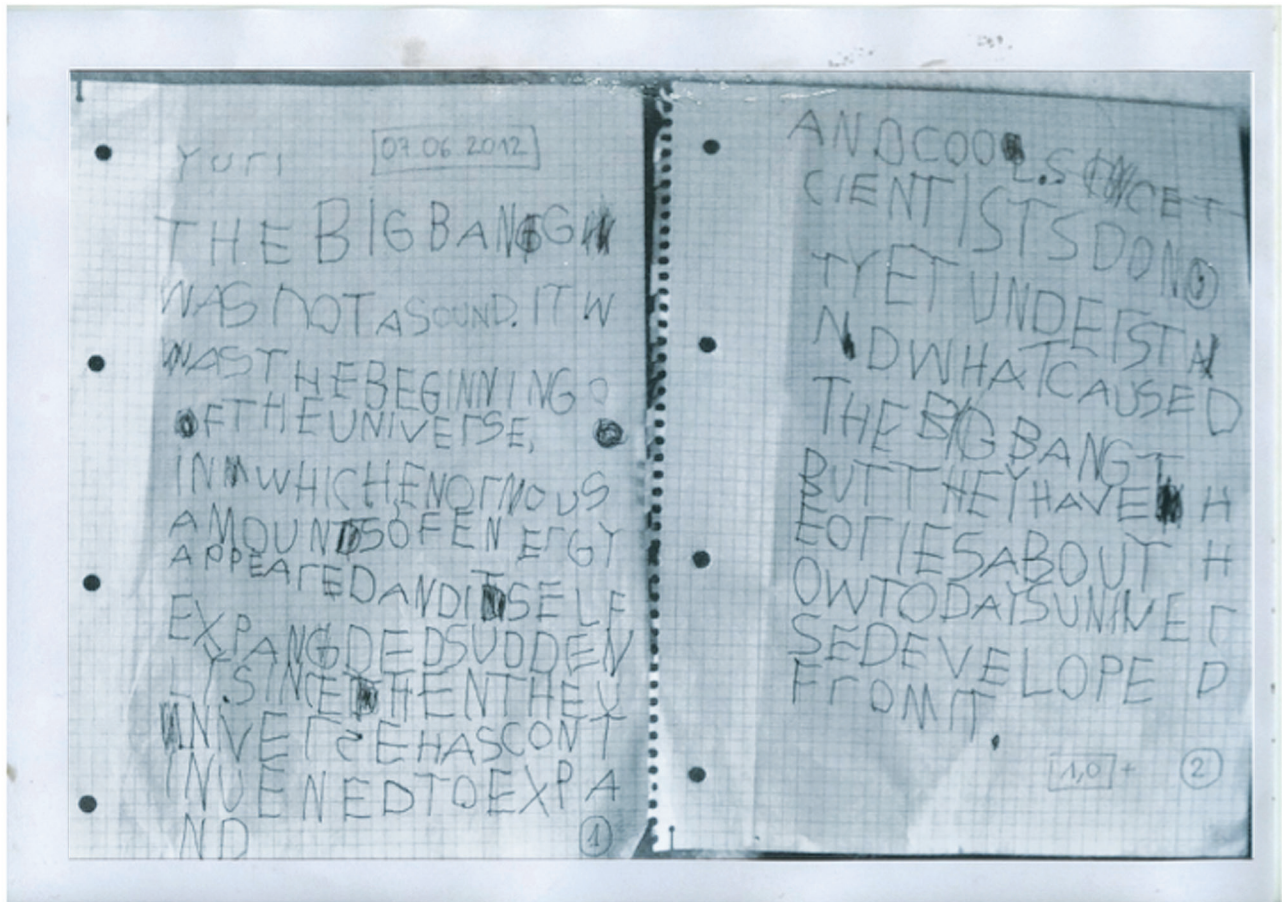 Yuri
07.06 2012
THE BIG BANGG
WAS NOT A SOUND. IT W
WASTHEBEGINNING O
OFTHEUNIVErSE,
INMWHICHENOrNOUS
AMOUNDSOFENErGY
APPEArEDANDITSELF
EXPANGDEDSUDDEN
LY.SINCETHENTHEU
UNIVErSEHASCONT
INUENEDTOEXPA
ND
1
ANDCOOL.SINCET
CIENTISTSDONO
TYETUNDErSTA
NDWHATCAUSED
THEBIGBANGT
BUTTHEYHAVE H
EOrIESABOUT H
OWTODAYSUNIVE r
SEDEVELOPE D
FrOMIT.
1,0 +
2